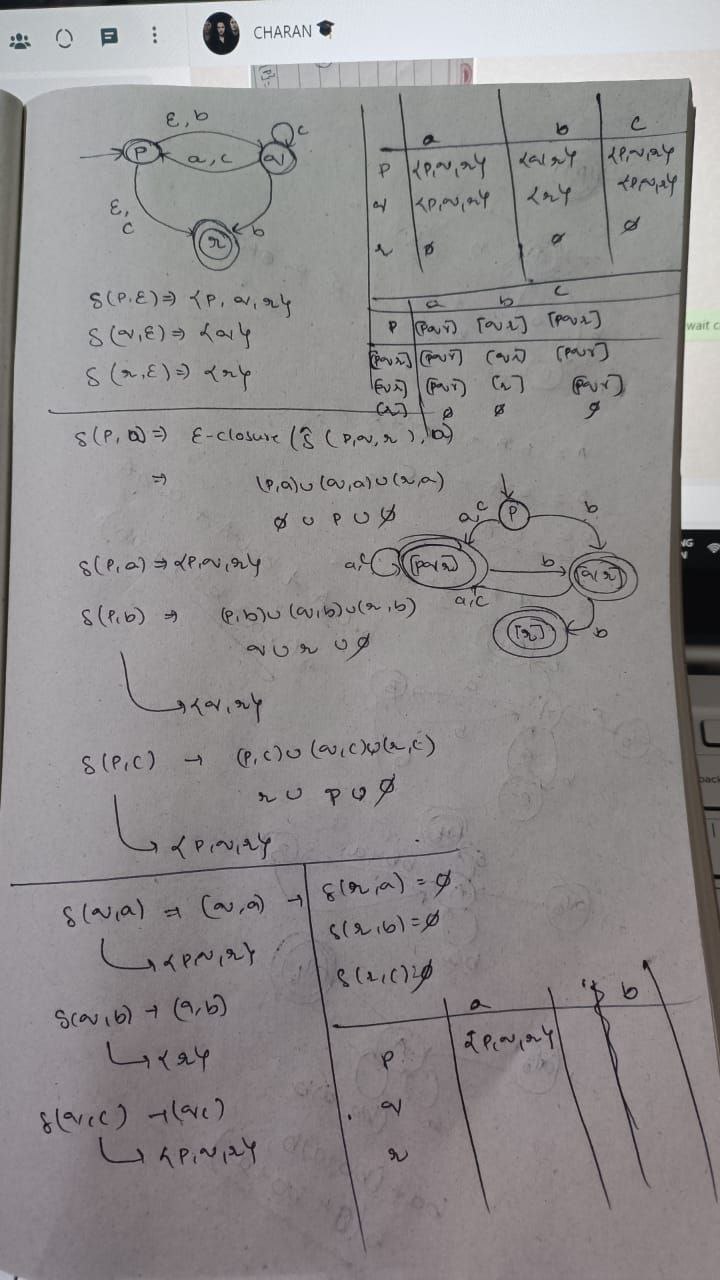 CHARAN
ε, b
c
P
a, c
q
ε,
c
b
r
a b c
P {P,q,r} {q,r} {P,q,r}
q {P,q,r} {r} {P,q,r}
r ∅ ∅ ∅
δ(P,ε) ⇒ {P, q, r}
δ(q,ε) ⇒ {q}
δ(r,ε) ⇒ {r}
a b c
P [pqr] [qr] [pqr]
[pqr] [pqr] [qr] [pqr]
[qr] [pqr] [r] [pqr]
[r] ∅ ∅ ∅
wait
δ(P, a) ⇒ ε-closure (δ̂ (P,q,r), a)
⇒ (P,a)∪(q,a)∪(r,a)
∅ ∪ P ∪ ∅
δ(P,a) ⇒ {P,q,r}
δ(P,b) ⇒ (P,b)∪(q,b)∪(r,b)
q ∪ r ∪ ∅
{q,r}
P
a,c
b
a,c
[pqr]
b
[qr]
a,c
[r]
b
δ(P,c) → (P,c)∪(q,c)∪(r,c)
r ∪ P ∪ ∅
{P,q,r}
δ(q,a) ⇒ (q,a) →
{P,q,r}
δ(q,b) → (q,b)
{r}
δ(q,c) → (q,c)
{P,q,r}
δ(r,a) = ∅
δ(r,b) = ∅
δ(r,c) = ∅
a b
P {P,q,r}
q
r